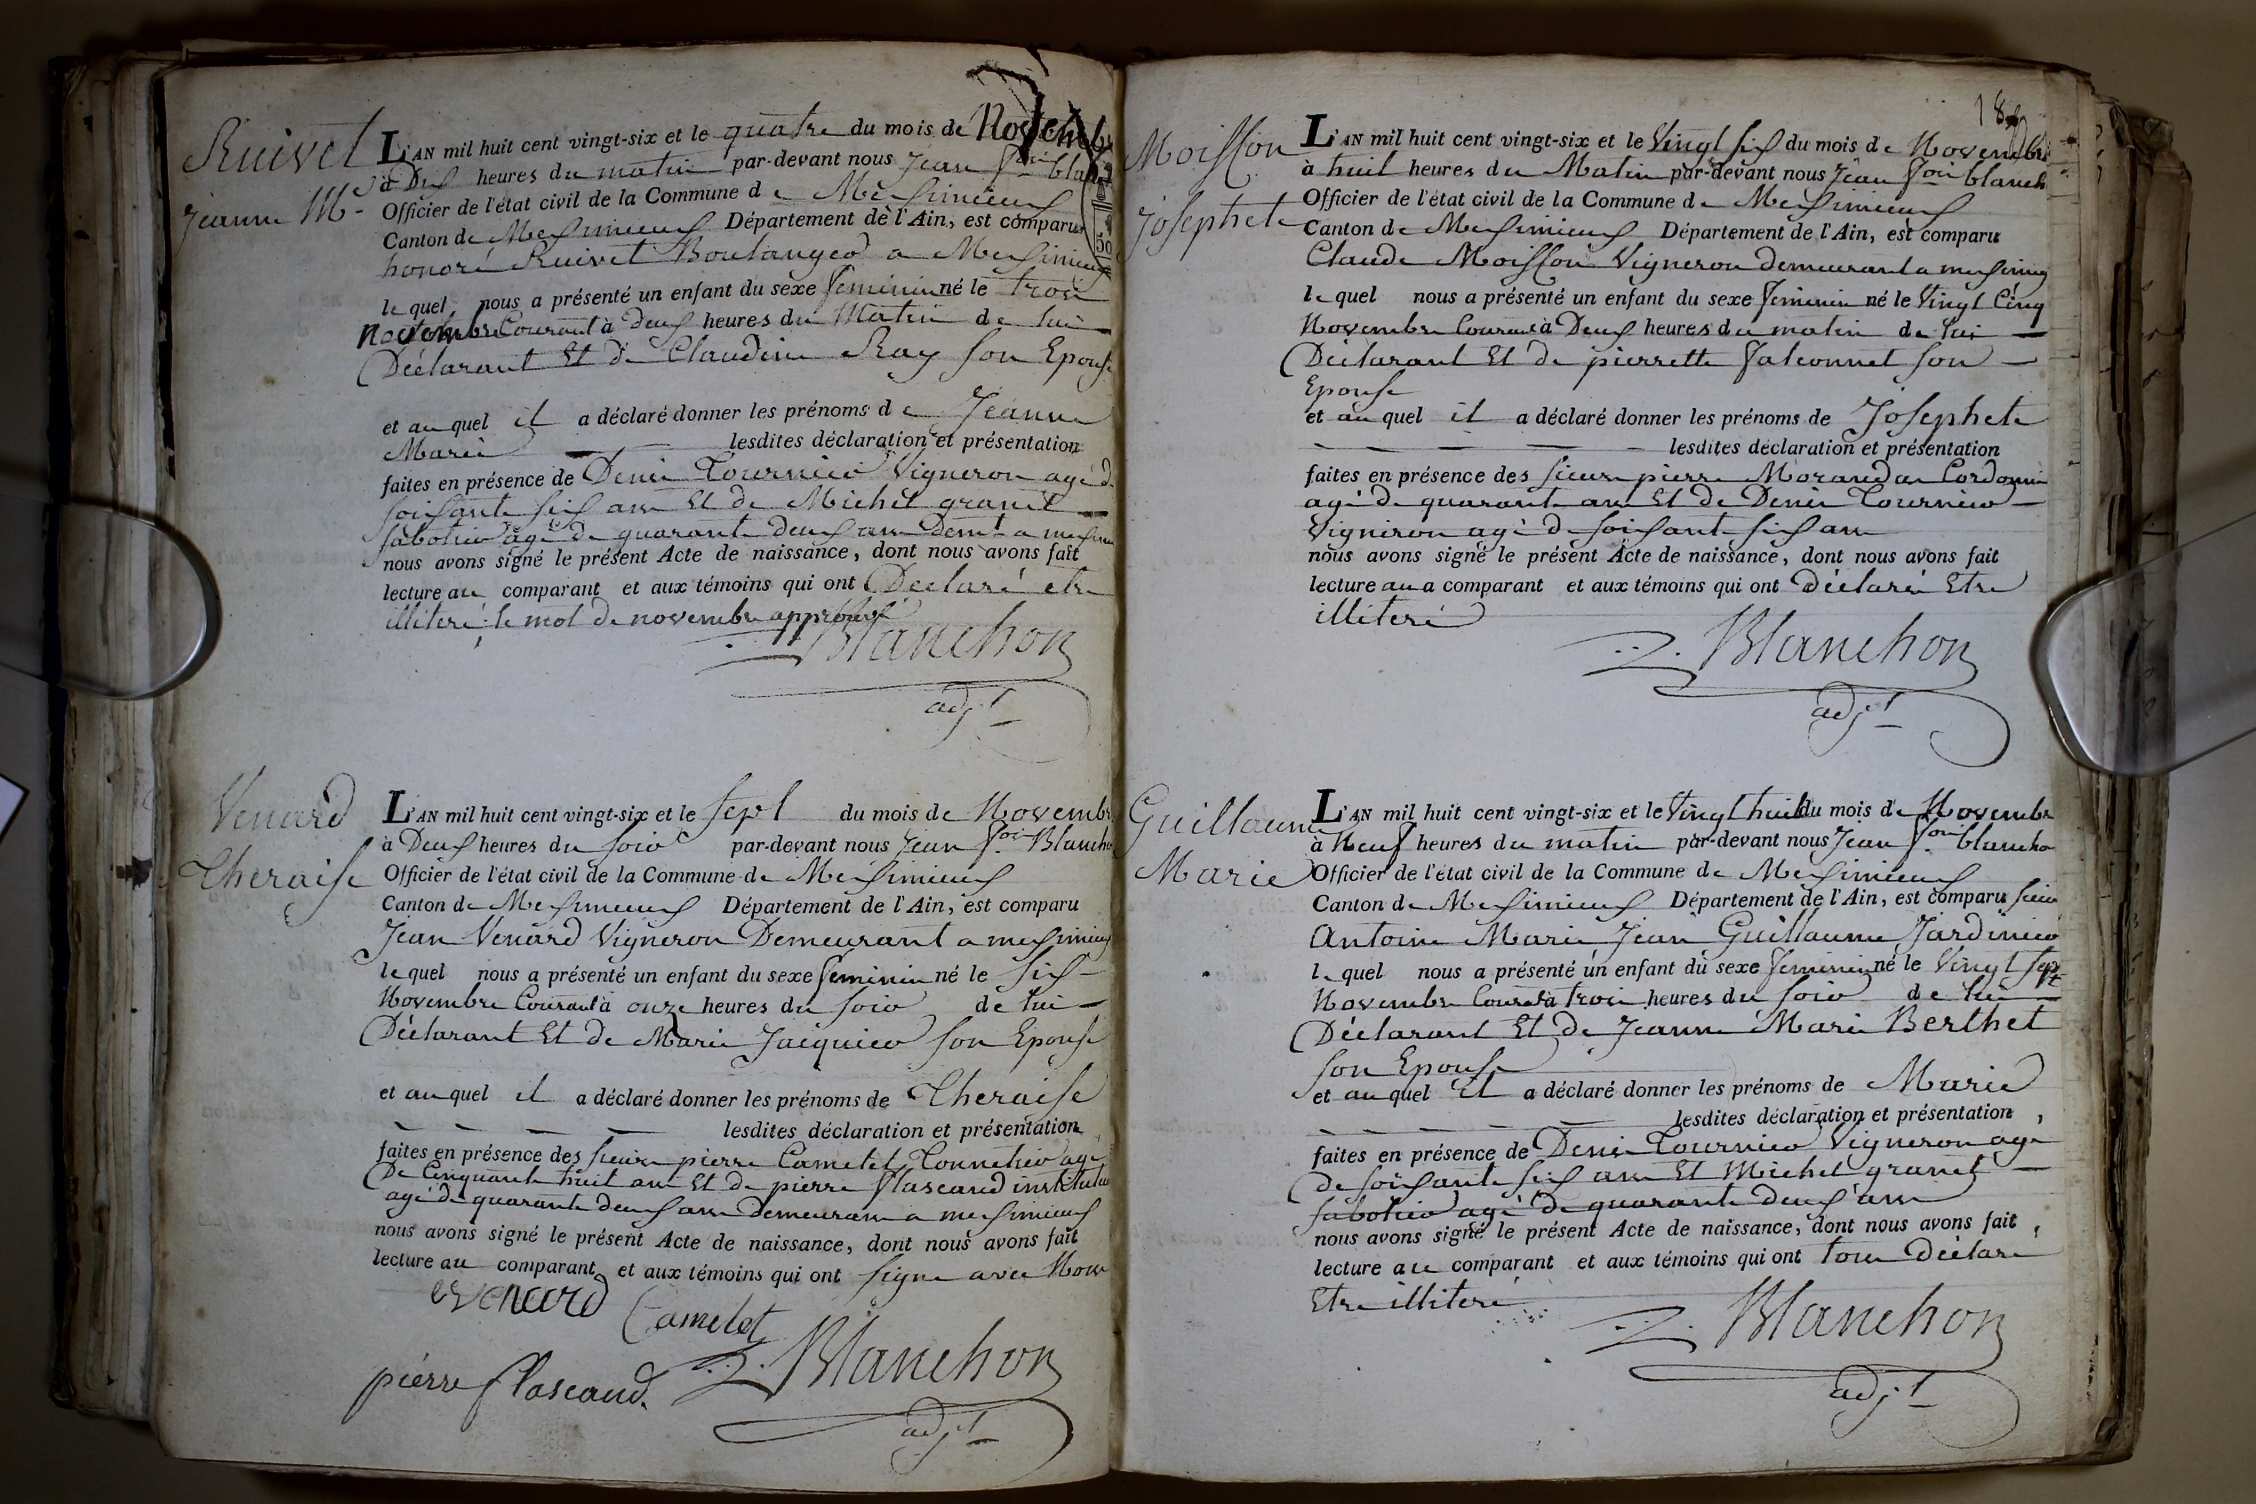 Ruivet
Jeanne Me
L'AN mil huit cent vingt-six et le quatre du mois de Novembre
à Deux heures du matin par-devant nous Jean fois
Officier de l'état civil de la Commune de Meximieux
Canton de Meximieux Département de l'Ain, est comparu
honoré Ruivet Boulanger a Meximieux
le quel nous a présenté un enfant du sexe feminin né le trois
novembre Courant à Deux heures du Matin de lui
Déclarant Et de Claudine Ray son Epouse
et au quel il a déclaré donner les prénoms de Jeanne
Marie lesdites déclaration et présentation
faites en présence de Denis Tournier Vigneron agé de
soixante six ans Et de Michel granet
sabotier agé de quarante deux ans Demt a meximieux
nous avons signé le présent Acte de naissance, dont nous avons fait
lecture au comparant et aux témoins qui ont Declaré etre
illiteré le mot de novembre approuvé
Blanchon
adjt
Venard
Theraise
L'AN mil huit cent vingt-six et le sept du mois de Novembre
à Deux heures du soir par-devant nous Jean fois Blanchon
Officier de l'état civil de la Commune de Meximieux
Canton de Meximieux Département de l'Ain, est comparu
Jean Venard Vigneron Demeurant a meximieux
le quel nous a présenté un enfant du sexe feminin né le six
Novembre Courant à onze heures du soir de lui
Déclarant Et de Marie Jacquier son Epouse
et au quel il a déclaré donner les prénoms de Theraise
lesdites déclaration et présentation
faites en présence des sieurs pierre Camelet Tonnelier agé
De Cinquante huit ans Et de pierre flascaud instituteur
agé de quarante deux ans Demeurans a meximieux
nous avons signé le présent Acte de naissance, dont nous avons fait
lecture au comparant et aux témoins qui ont signe avec Nous
venard
Camelet
pierre flascaud. Blanchon
adjt
18
Moisson
Josephete
L'AN mil huit cent vingt-six et le Vingt six du mois de Novembre
à huit heures du Matin par-devant nous Jean fois blanch
Officier de l'état civil de la Commune de Meximieux
Canton de Meximieux Département de l'Ain, est comparu
Claude Moisson Vigneron demeurant a meximieux
le quel nous a présenté un enfant du sexe feminin né le Vingt Cinq
Novembre Courant à Deux heures du matin de lui
Déclarant Et de pierrette falconnet son
Epouse
et au quel il a déclaré donner les prénoms de Josephete
lesdites déclaration et présentation
faites en présence des sieurs pierre Morandon Cordonnier
agé de quarante ans Et de Denis Tournier
Vigneron agé de soixante six ans
nous avons signé le présent Acte de naissance, dont nous avons fait
lecture au a comparant et aux témoins qui ont Déclaré Etre
illiteré
Blanchon
adjt
Guillaume
Marie
L'AN mil huit cent vingt-six et le Vingt huit du mois de Novembre
à Neuf heures du matin par-devant nous Jean fois blancho
Officier de l'état civil de la Commune de Meximieux
Canton de Meximieux Département de l'Ain, est comparu sieur
Antoine Marie Jean Guillaume Jardinier
le quel nous a présenté un enfant du sexe feminin né le Vingt sept
Novembre Courant à trois heures du soir de lui
Déclarant Et de Jeanne Marie Berthet
son Epouse
et au quel il a déclaré donner les prénoms de Marie
lesdites déclaration et présentation
faites en présence de Denis Tournier Vigneron agé
de soixante six ans Et Michel granet
sabotier agé de quarante deux ans
nous avons signé le présent Acte de naissance, dont nous avons fait
lecture au comparant et aux témoins qui ont tous Déclaré
Etre illiteré
Blanchon
adjt